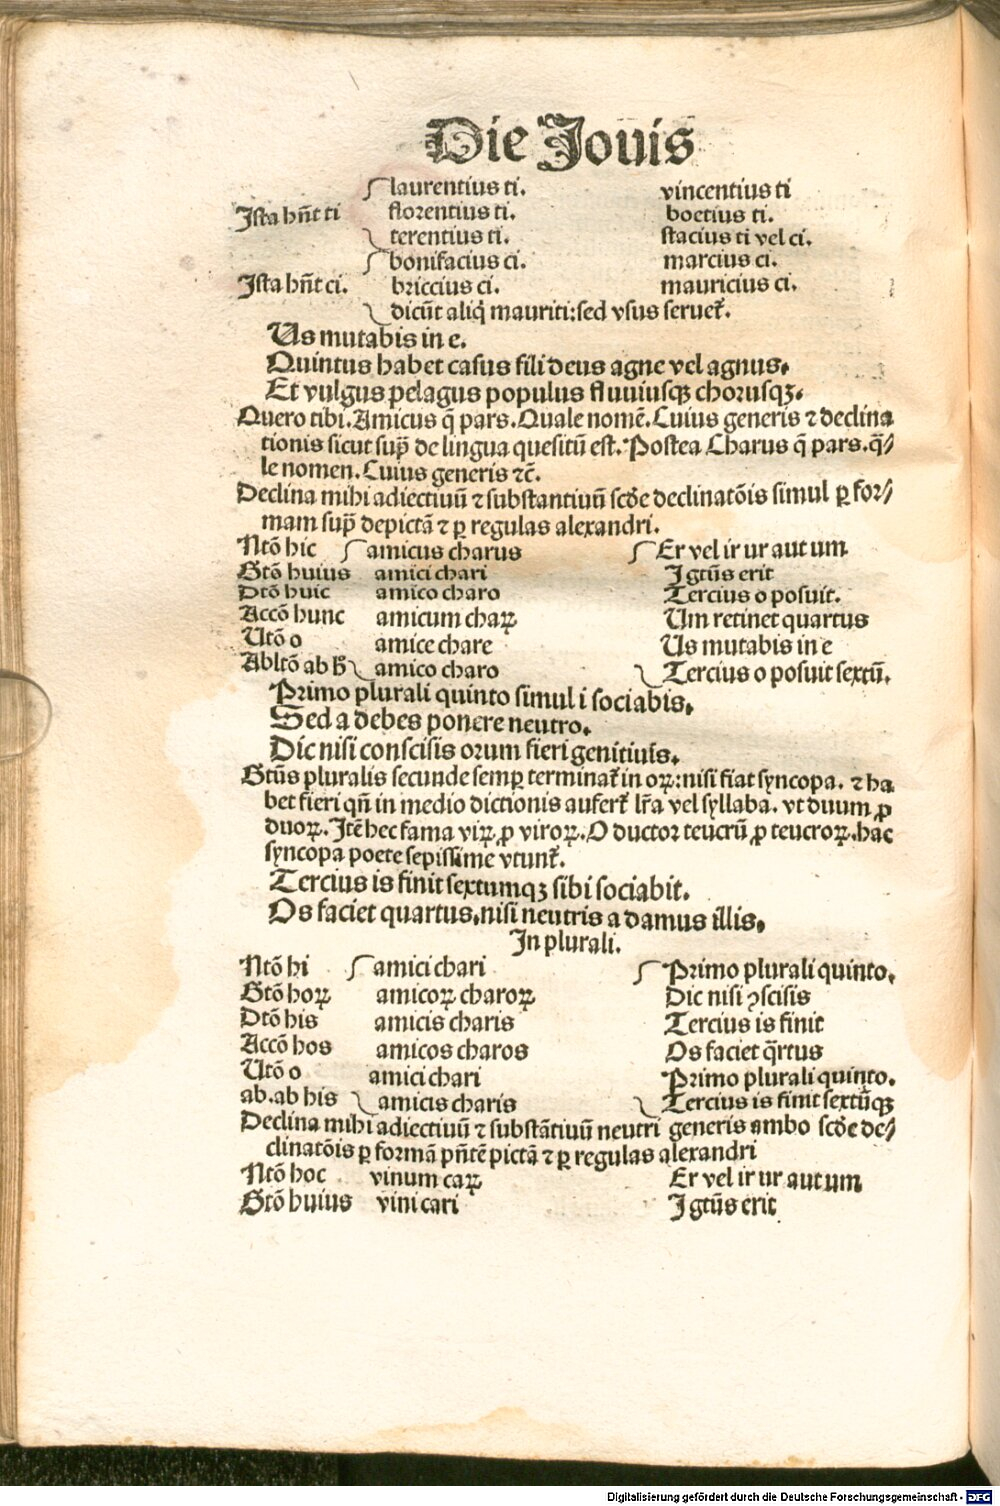 Die Jouis
laurentius ti. vincentius ti
Ista hn̄t ti florentius ti. boetius ti.
terentius ti. stacius ti vel ci.
bonifacius ci. marcius ci.
Ista hn̄t ci. briccius ci. mauricius ci.
dicūt aliq̄ mauriti:sed vsus seruet᷑.
Us mutabis in e.
Quintus habet casus fili deus agne vel agnus.
Et vulgus pelagus populus fluuiusqꝫ chorusqꝫ.
Quero tibi. Amicus q̄ pars. Quale nomē. Cuius generis ⁊ declina
tionis sicut sup̄ de lingua quesitū est. Postea Charus q̄ pars. q̄⸗
le nomen. Cuius generis ⁊c̄.
Declina mihi adiectiuū ⁊ substantiuū scd̄e declinatōis simul ꝑ for⸗
mam sup̄ depictā ⁊ ꝑ regulas alexandri.
Ntō hic amicus charus Er vel ir ur aut um
Gtō huius amici chari I gtūs erit
Dtō huic amico charo Tercius o posuit.
Accō hunc amicum charꝝ Um retinet quartus
Utō o amice chare Us mutabis in e
Abltō ab h̄ amico charo Tercius o posuit sextū.
Primo plurali quinto simul i sociabis.
Sed a debes ponere neutro.
Dic nisi conscisis orum fieri genitiuis.
Gtūs pluralis secunde semꝑ terminat᷑ in oꝝ:nisi fiat syncopa. ⁊ ha
bet fieri qn̄ in medio dictionis aufert᷑ lr̄a vel syllaba. vt duum ꝓ
duoꝝ. Itē hec fama viꝝ, ꝓ viroꝝ. O ductor teucrū ꝓ teucroꝝ. hac
syncopa poete sepissime vtunt᷑.
Tercius is finit sextumqꝫ sibi sociabit.
Os faciet quartus, nisi neutris a damus illis.
In plurali.
Ntō hi amici chari Primo plurali quinto.
Gtō hoꝝ amicoꝝ charoꝝ Dic nisi ꝯscisis
Dtō his amicis charis Tercius is finit
Accō hos amicos charos Os faciet q̄rtus
Utō o amici chari Primo plurali quinto.
ab. ab his amicis charis Tercius is finit sextūqꝫ
Declina mihi adiectiuū ⁊ substātiuū neutri generis ambo scd̄e de⸗
clinatōis ꝑ formā pn̄tē pictā ⁊ ꝑ regulas alexandri
Ntō hoc vinum caꝝ Er vel ir ur aut um
Gtō huius vini cari I gtūs erit
Digitalisierung gefördert durch die Deutsche Forschungsgemeinschaft - DFG